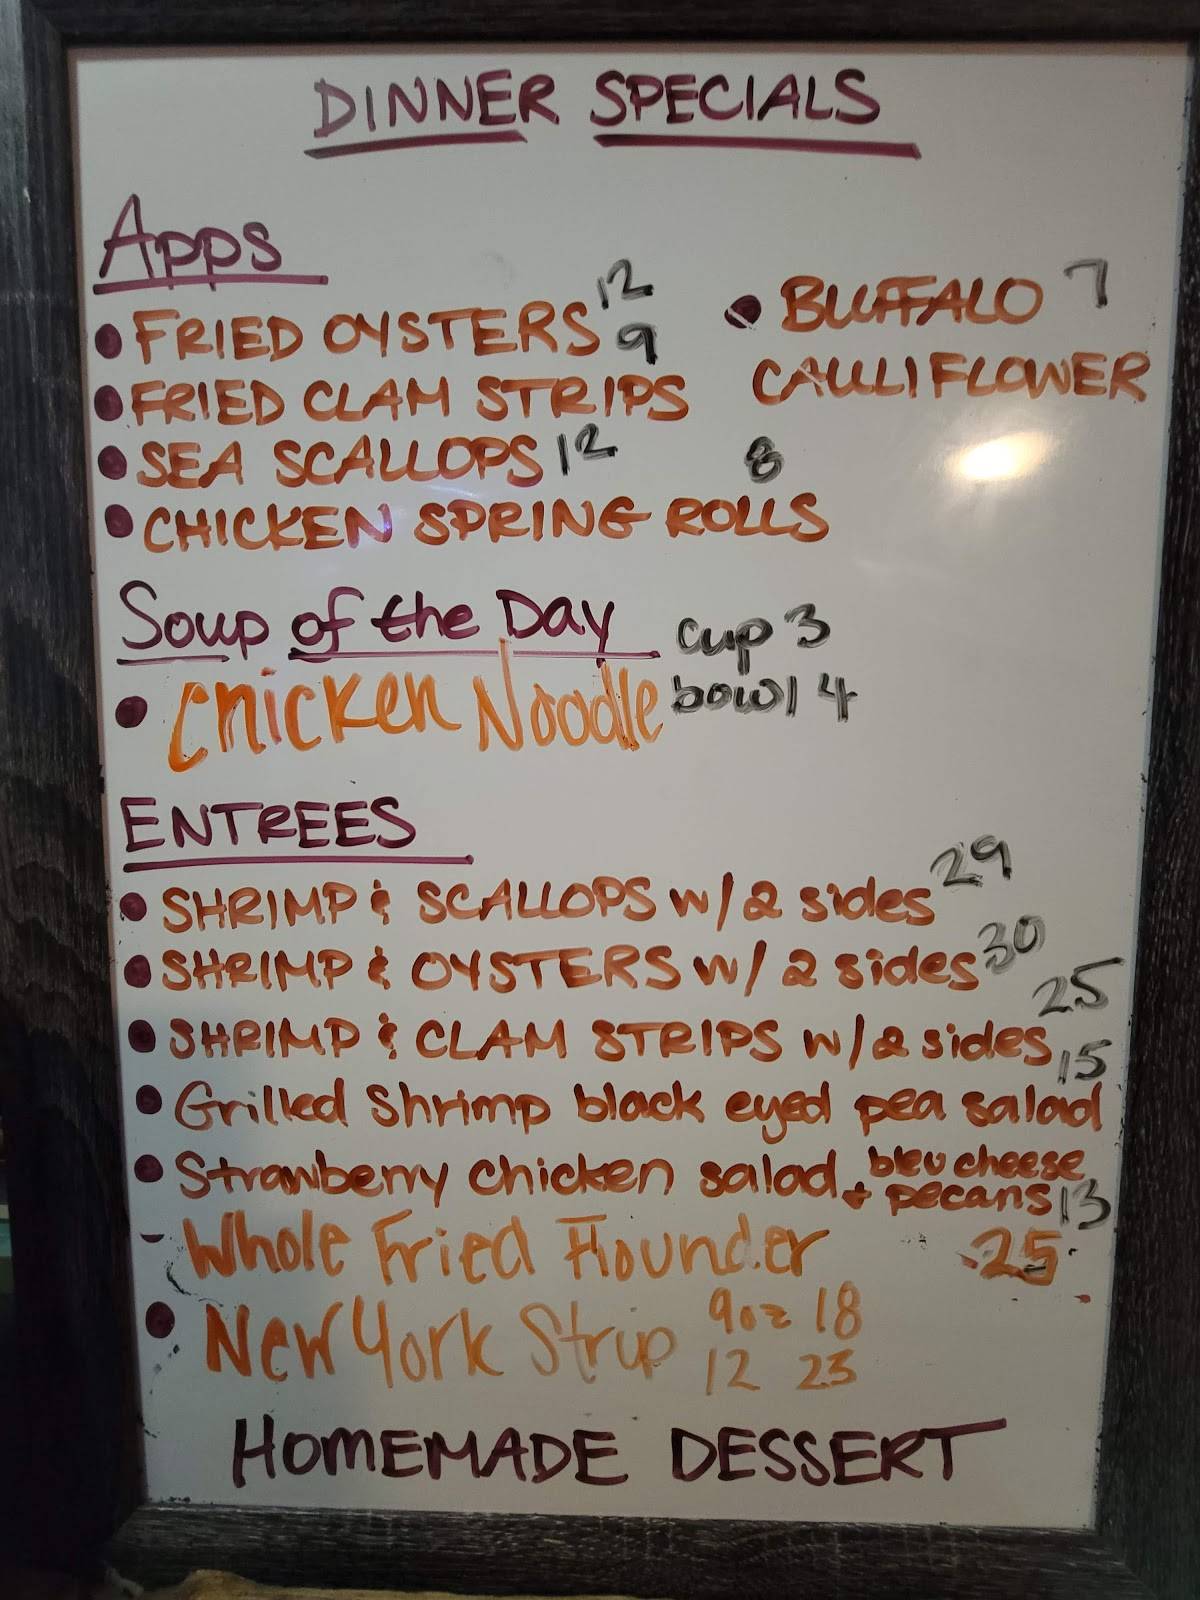 DINNER SPECIALS
Apps
• FRIED OYSTERS 12
• FRIED CLAM STRIPS 9
• SEA SCALLOPS 12
• CHICKEN SPRING ROLLS 8
• BUFFALO 7
CAULIFLOWER
Soup of the Day cup 3
• Chicken Noodle bowl 4
ENTREES
• SHRIMP & SCALLOPS w/ 2 sides 29
• SHRIMP & OYSTERS w/ 2 sides 30
• SHRIMP & CLAM STRIPS w/ 2 sides 25
• Grilled Shrimp black eyed pea salad 15
• Strawberry chicken salad bleu cheese
+ pecans 13
- Whole Fried Flounder 25
• New York Strip 9oz 18
12 23
HOMEMADE DESSERT